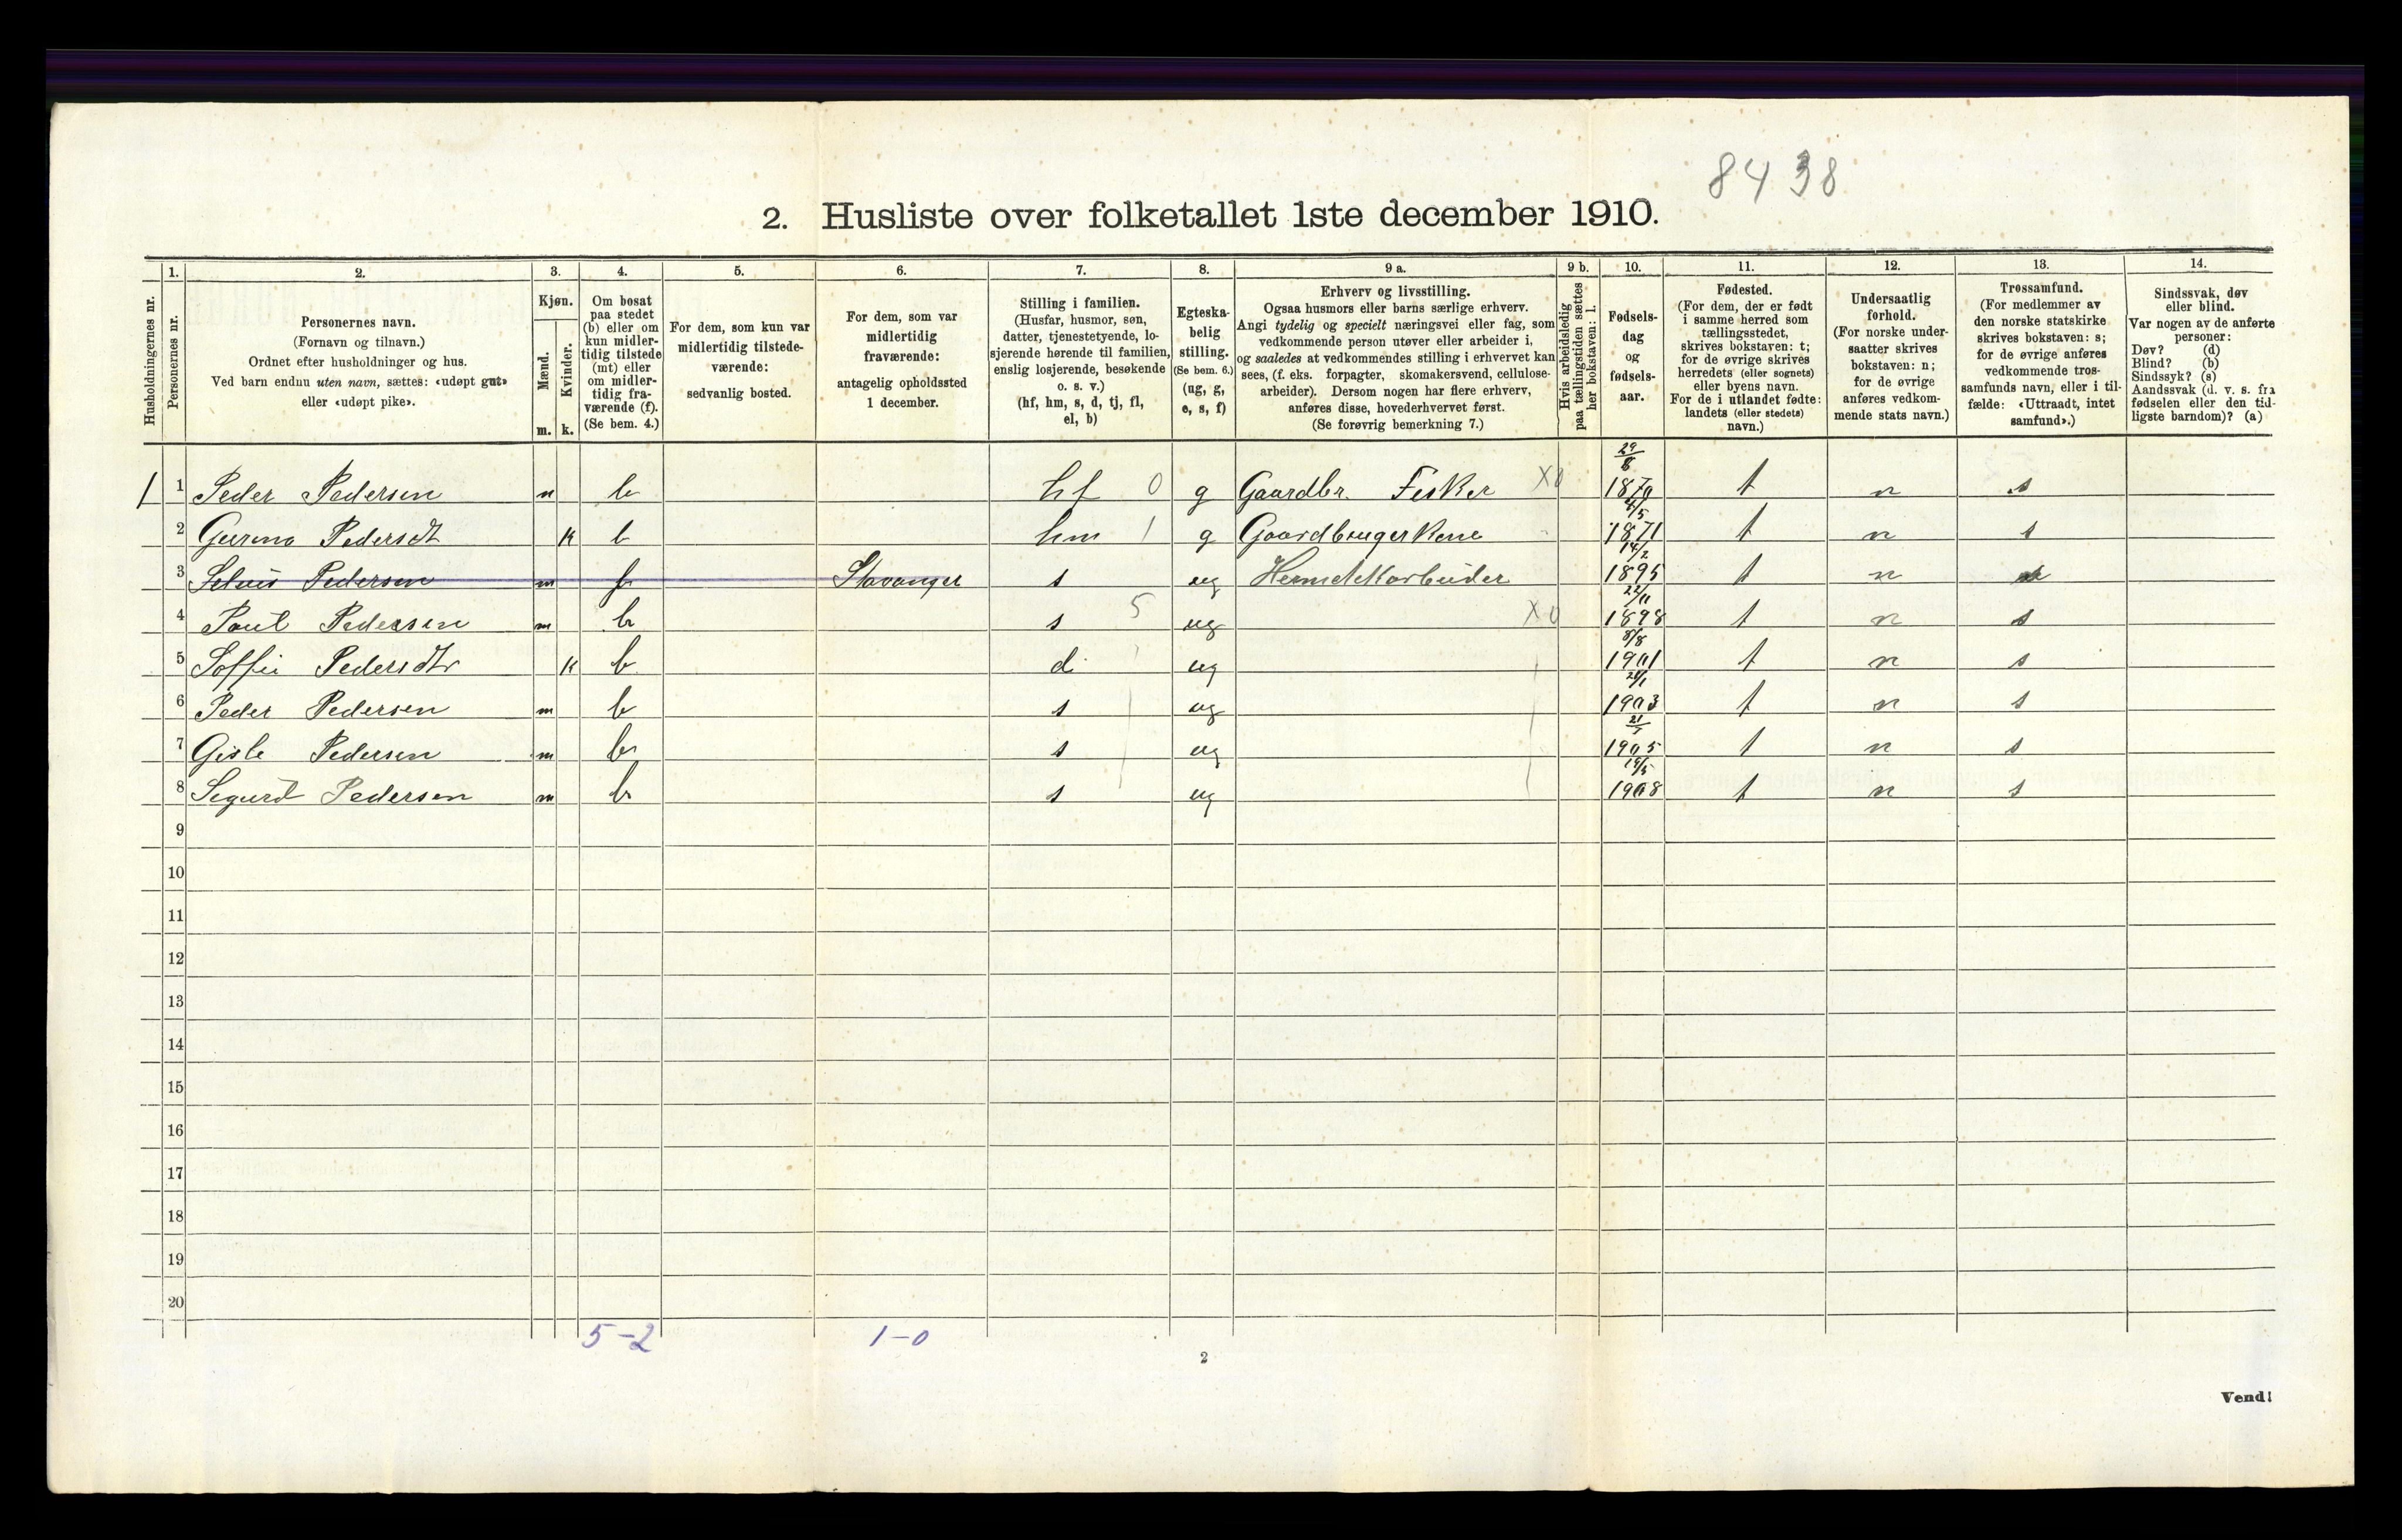 8438
2. Husliste over folketallet 1ste december 1910.
Husholdningernes nr.
1.
Personernes nr.
2.
Personernes navn.
(Fornavn og tilnavn.)
Ordnet efter husholdninger og hus.
Ved barn endnu uten navn, sættes: «udøpt gut»
eller «udøpt pike».
3.
Kjøn.
Mænd.
Kvinder.
m. k.
4.
Om bosat
paa stedet
(b) eller om
kun midler-
tidig tilstede
(mt) eller
om midler-
tidig fra-
værende (f).
(Se bem. 4.)
5.
For dem, som kun var
midlertidig tilstede-
værende:
sedvanlig bosted.
6.
For dem, som var
midlertidig
fraværende:
antagelig opholdssted
1 december.
7.
Stilling i familien.
(Husfar, husmor, søn,
datter, tjenestetyende, lo-
sjerende hørende til familien,
enslig losjerende, besøkende
o. s. v.)
(hf, hm, s, d, tj, fl,
el, b)
8.
Egteska-
belig
stilling.
(Se bem. 6.)
(ug, g,
e, s, f)
9 a.
Erhverv og livsstilling.
Ogsaa husmors eller barns særlige erhverv.
Angi tydelig og specielt næringsvei eller fag, som
vedkommende person utøver eller arbeider i,
og saaledes at vedkommendes stilling i erhvervet kan
sees, (f. eks. forpagter, skomakersvend, cellulose-
arbeider). Dersom nogen har flere erhverv,
anføres disse, hovederhvervet først.
(Se forøvrig bemerkning 7.)
9 b.
Hvis arbeidsledig
paa tællingstiden sættes
her bokstaven: l.
10.
Fødsels-
dag
og
fødsels-
aar.
11.
Fødested.
(For dem, der er født
i samme herred som
tællingsstedet,
skrives bokstaven: t;
for de øvrige skrives
herredets (eller sognets)
eller byens navn.
For de i utlandet fødte:
landets (eller stedets)
navn.)
12.
Undersaatlig
forhold.
(For norske under-
saatter skrives
bokstaven: n;
for de øvrige
anføres vedkom-
mende stats navn.)
13.
Trossamfund.
(For medlemmer av
den norske statskirke
skrives bokstaven: s;
for de øvrige anføres
vedkommende tros-
samfunds navn, eller i til-
fælde: «Uttraadt, intet
samfund».)
14.
Sindssvak, døv
eller blind.
Var nogen av de anførte
personer:
Døv? (d)
Blind? (b)
Sindssyk? (s)
Aandssvak (d. v. s. fra
fødselen eller den tid-
ligste barndom)? (a)
1 1 Peder Pedersen m b hf 0 g Gaardbr. Fisker X0 29/8 1870 t n s
2 Pedersdt k b hm 1 g Gaardbrugerkone 1871 t n s
3 Pedersen m Stavanger s ug Hermetikarbeider 14/2 1895 t n
4 Paul Pedersen m b s 5 ug X0 22/11 1898 t n s
5 Soffie Pedersdtr k b d ug 8/8 1901 t n s
6 Peder Pedersen m b s ug 1903 t n s
7 Gisle Pedersen m b s ug 1905 t n s
8 Sigurd Pedersen m b s ug 1908 t n s
9
10
11
12
13
14
15
16
17
18
19
20
5-2 1-0
2
Vend!